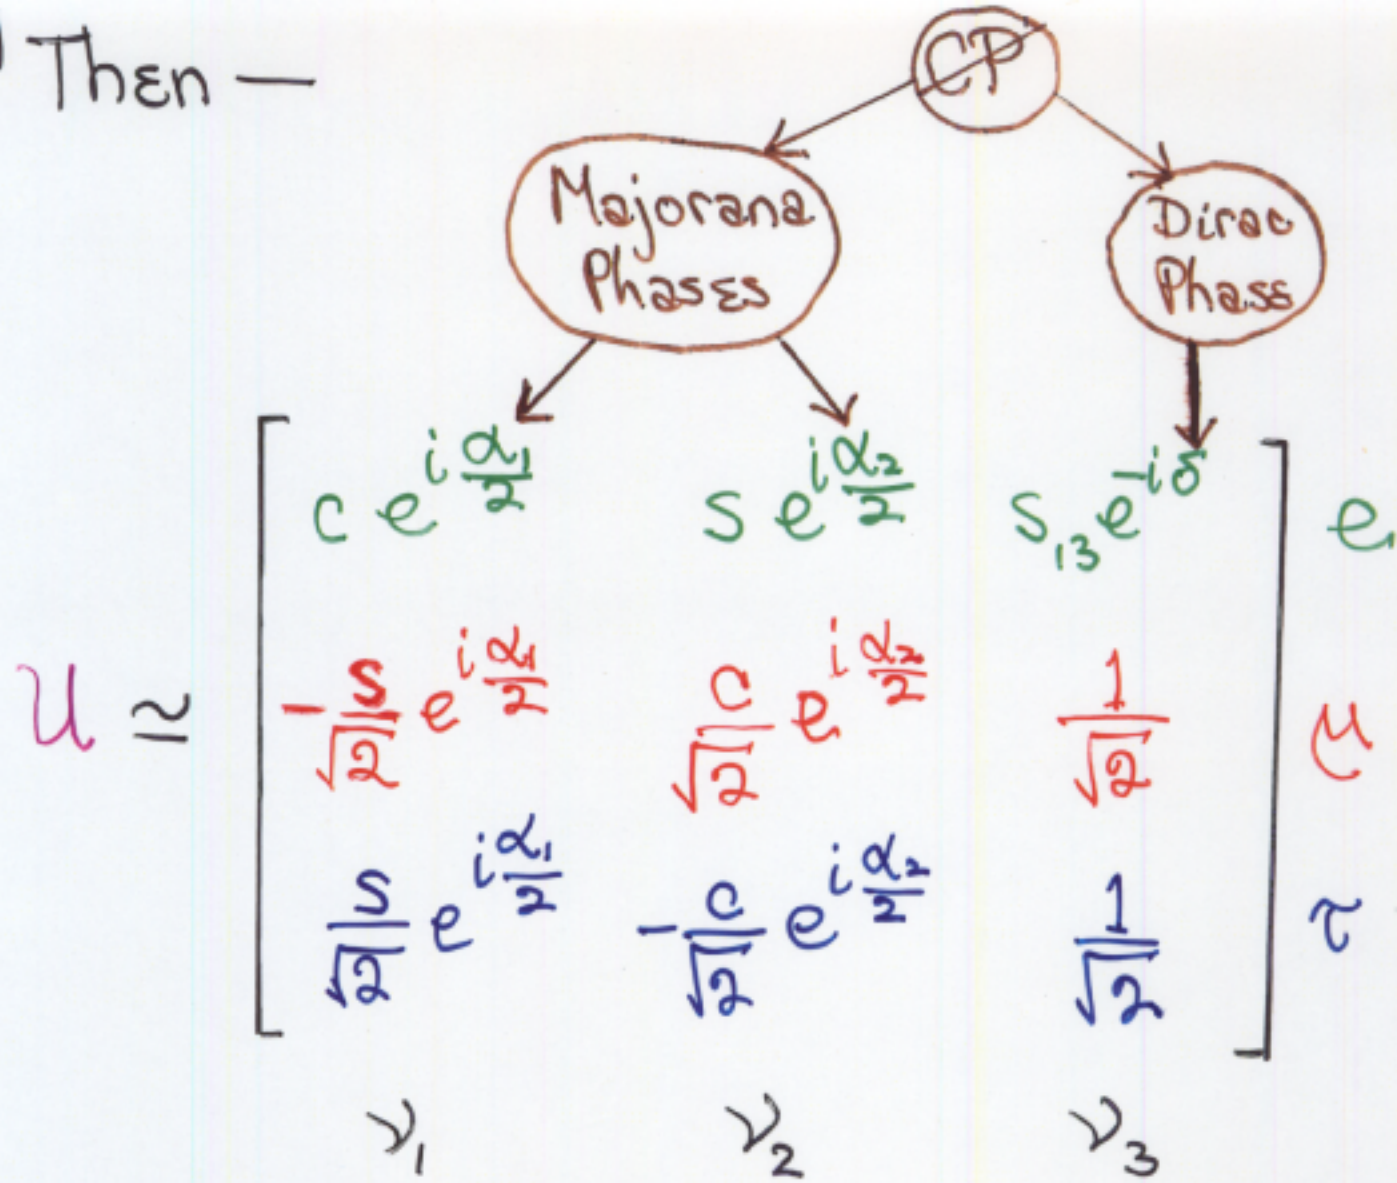 Then —
CP
Majorana
Phases
Dirac
Phase
c e^{i α₁/2} s e^{i α₂/2} s₁₃ e^{-iδ} e
U ≃ -s/√2 e^{i α₁/2} c/√2 e^{i α₂/2} 1/√2 μ
s/√2 e^{i α₁/2} -c/√2 e^{i α₂/2} 1/√2 τ
ν₁ ν₂ ν₃